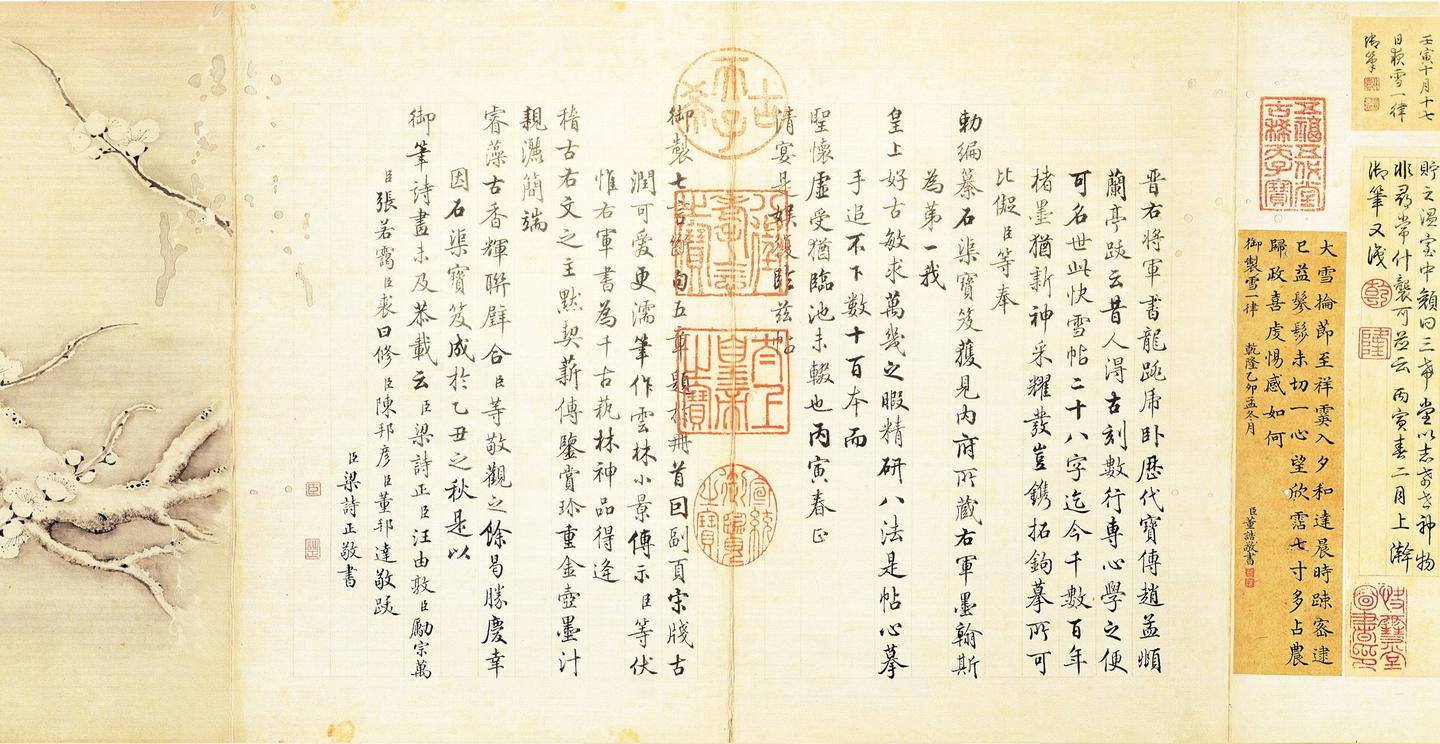 壬寅十月十七
日快雪一律
御筆
貯之溫室中顏曰三希堂以志希世神物
非尋常什襲可並云丙寅春二月上澣
御筆又識
乾
隆
五福五代堂
古稀天子寶
大雪掄節至祥霙入夕和達晨時疎密逮
巳益鬖髿未切一心望欣霑七寸多占農
歸政喜虔惕感如何
御製雪一律 乾隆乙卯孟冬月
臣董誥敬書
晉右將軍書龍跳虎卧歷代寶傳趙孟頫
蘭亭跋云昔人得古刻數行專心學之便
可名世此快雪帖二十八字迄今千數百年
楮墨猶新神采耀發豈鐫拓鉤摹所可
比儗臣等奉
勅編纂石渠寶笈獲見內府所藏右軍墨翰斯
為第一我
皇上好古敏求萬幾之暇精研八法是帖心摹
手追不下數十百本而
聖懷虛受猶臨池未輟也丙寅春正
清宴是娛復臨茲帖
御製七言斷句五章題於冊首回副頁宋牋古
潤可愛更濡筆作雲林小景傳示臣等伏
惟右軍書為千古藝林神品得逢
稽古右文之主默契薪傳鑒賞珍重金壺墨汁
親灑簡端
睿藻古香輝聯璧合臣等敬觀之餘曷勝慶幸
因石渠寶笈成於乙丑之秋是以
御筆詩畫未及恭載云臣梁詩正臣汪由敦臣勵宗萬
臣張若靄臣裘曰修臣陳邦彥臣董邦達敬跋
臣梁詩正敬書
古希天子
八徵耄念之寶
太上皇帝之寶
宣統御覽之寶